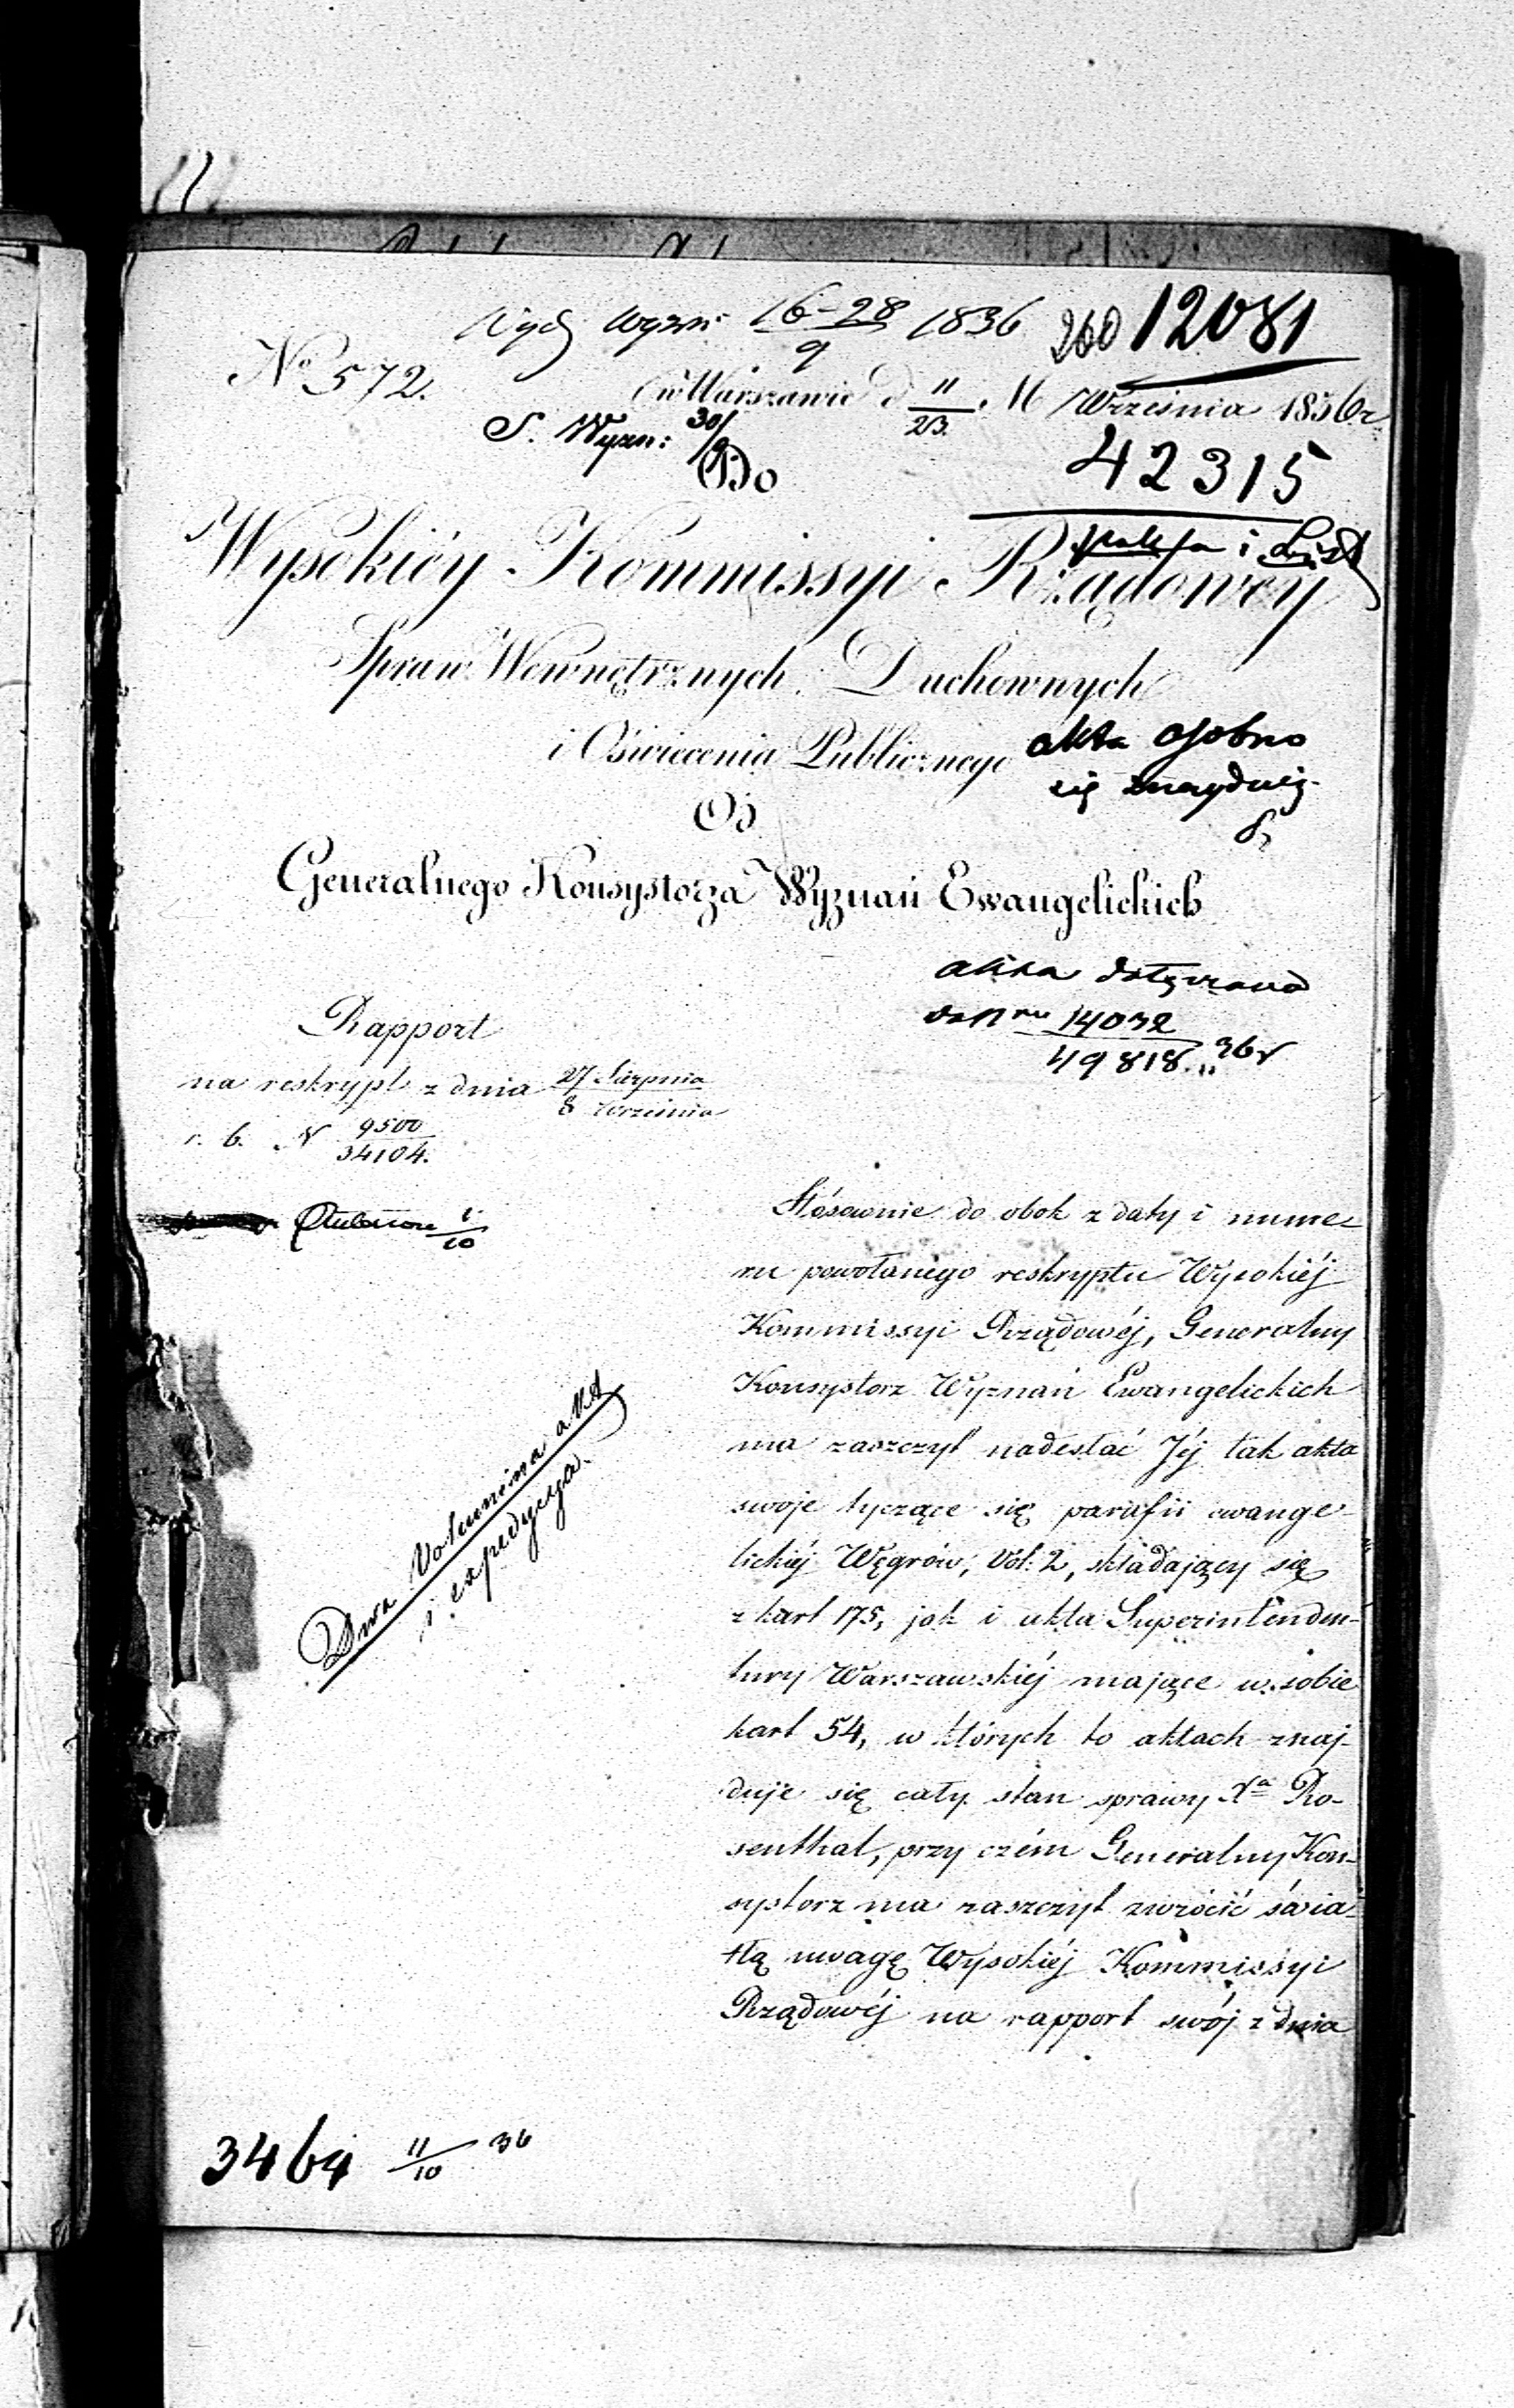 Wyd Wyzn: 16-28/9 1836
260 12081
No 572.
w Warszawie d 11/23. M Września 1836 r.
S. Wyzn: 30/9
42315
Do
i List
Wysokiéy Kommissyi Rządowéy
Spraw Wewnętrznych, Duchownych
i Oświecenia Publicznego
akta osobno
się znayduią.
Od
Generalnego Konsystorza Wyznań Ewangelickich
akta dołączono
do Nru 14032/49818 .. 36 r
Rapport
na reskrypt z dnia 27 Sierpnia/8 Września
r. b. N 9500/34104.
1/10
Stósownie do obok z daty i nume-
ru powołanego reskryptu Wysokiéj
Kommissyi Rządowéj, Generalny
Konsystorz Wyznań Ewangelickich
ma zaszczyt nadesłać Jéj tak akta
swoje tyczące się parafii ewange-
lickiéj Węgrów, Vol: 2, składający się
z kart 175, jak i akta Superintenden-
tury Warszawskiéj mające w sobie
kart 54, w których to aktach znaj-
duje się cały stan sprawy Xa Ro-
senthal, przy czém Generalny Kon-
systorz ma zaszczyt zwrócić świa-
tłą uwagę Wysokiéj Kommissyi
Rządowéj na rapport swój z dnia
Dwa Volumina akt
i expedycya.
3464 11/10 36